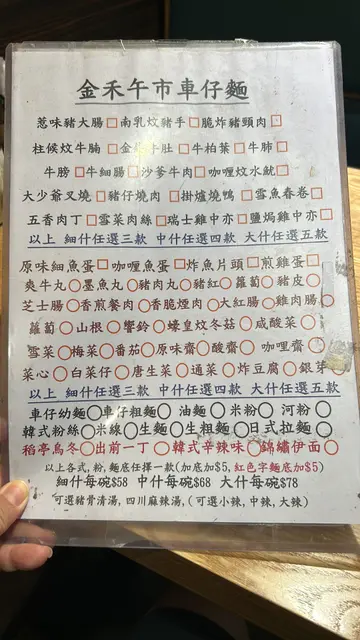 金禾午市車仔麵
惹味豬大腸□南乳炆豬手□脆炸豬頸肉□
柱候炆牛腩□金錢牛肚□牛柏葉□牛肺□
牛膀□牛細腸□沙爹牛肉□咖喱炆水魷□
大少爺叉燒□豬仔燒肉□掛爐燒鴨□雪魚春卷□
五香肉丁□雪菜肉絲□瑞士雞中亦□鹽焗雞中亦□
以上 細什任選三款 中什任選四款 大什任選五款
原味細魚蛋○咖喱魚蛋○炸魚片頭○煎雞蛋○
爽牛丸○墨魚丸○豬肉丸○豬紅○蘿蔔○豬皮○
芝士腸○香煎餐肉○香脆煙肉○大紅腸○雞肉腸○
蘿蔔○山根○響鈴○蠔皇炆冬菇○咸酸菜○
雪菜○梅菜○番茄○原味齋○酸齋○咖喱齋○
菜心○白菜仔○唐生菜○通菜○炸豆腐○銀芽○
以上 細什任選三款 中什任選四款 大什任選五款
車仔幼麵○車仔粗麵○油麵○米粉○河粉○
韓式粉絲○米線○生麵○生粗麵○日式拉麵○
稻亭烏冬○出前一丁○韓式辛辣味○錦繡伊面○
以上各式,粉,麵底任擇一款(加底加$5,紅色字麵底加$5)
細什每碗$58 中什每碗$68 大什每碗$78
可選豬骨清湯,四川麻辣湯,(可選小辣,中辣,大辣)